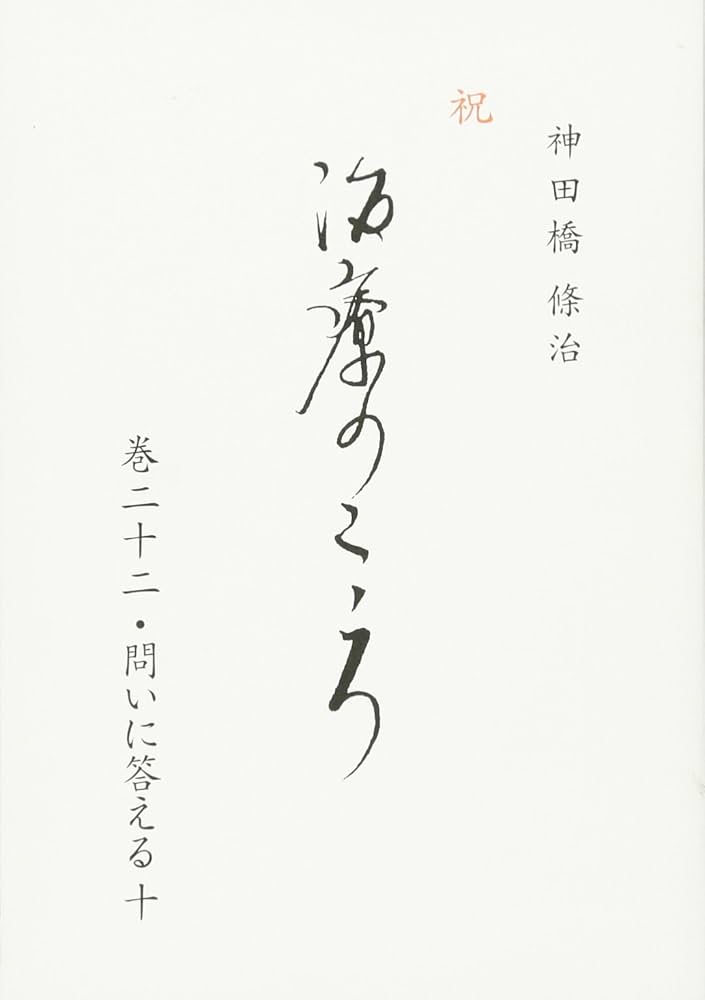 神田橋 條治
祝
治療のこゝろ
巻二十二・問いに答える 十